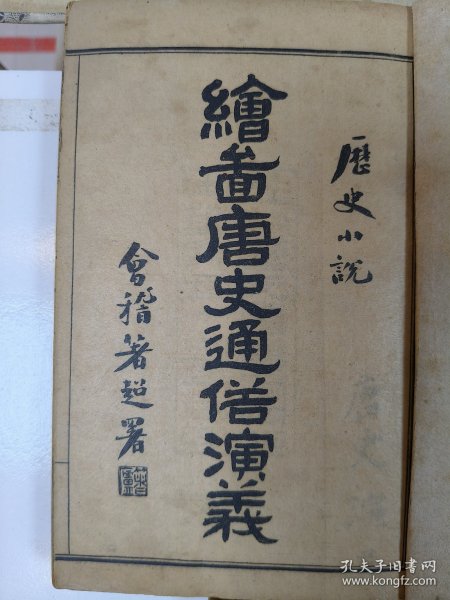 歷史小說
繪啚唐史通俗演義
會稽蓍超署
孔夫子旧书网
www.kongfz.com